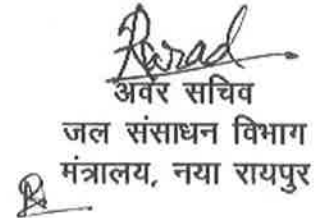 अवर सचिव
जल संसाधन विभाग
मंत्रालय, नया रायपुर